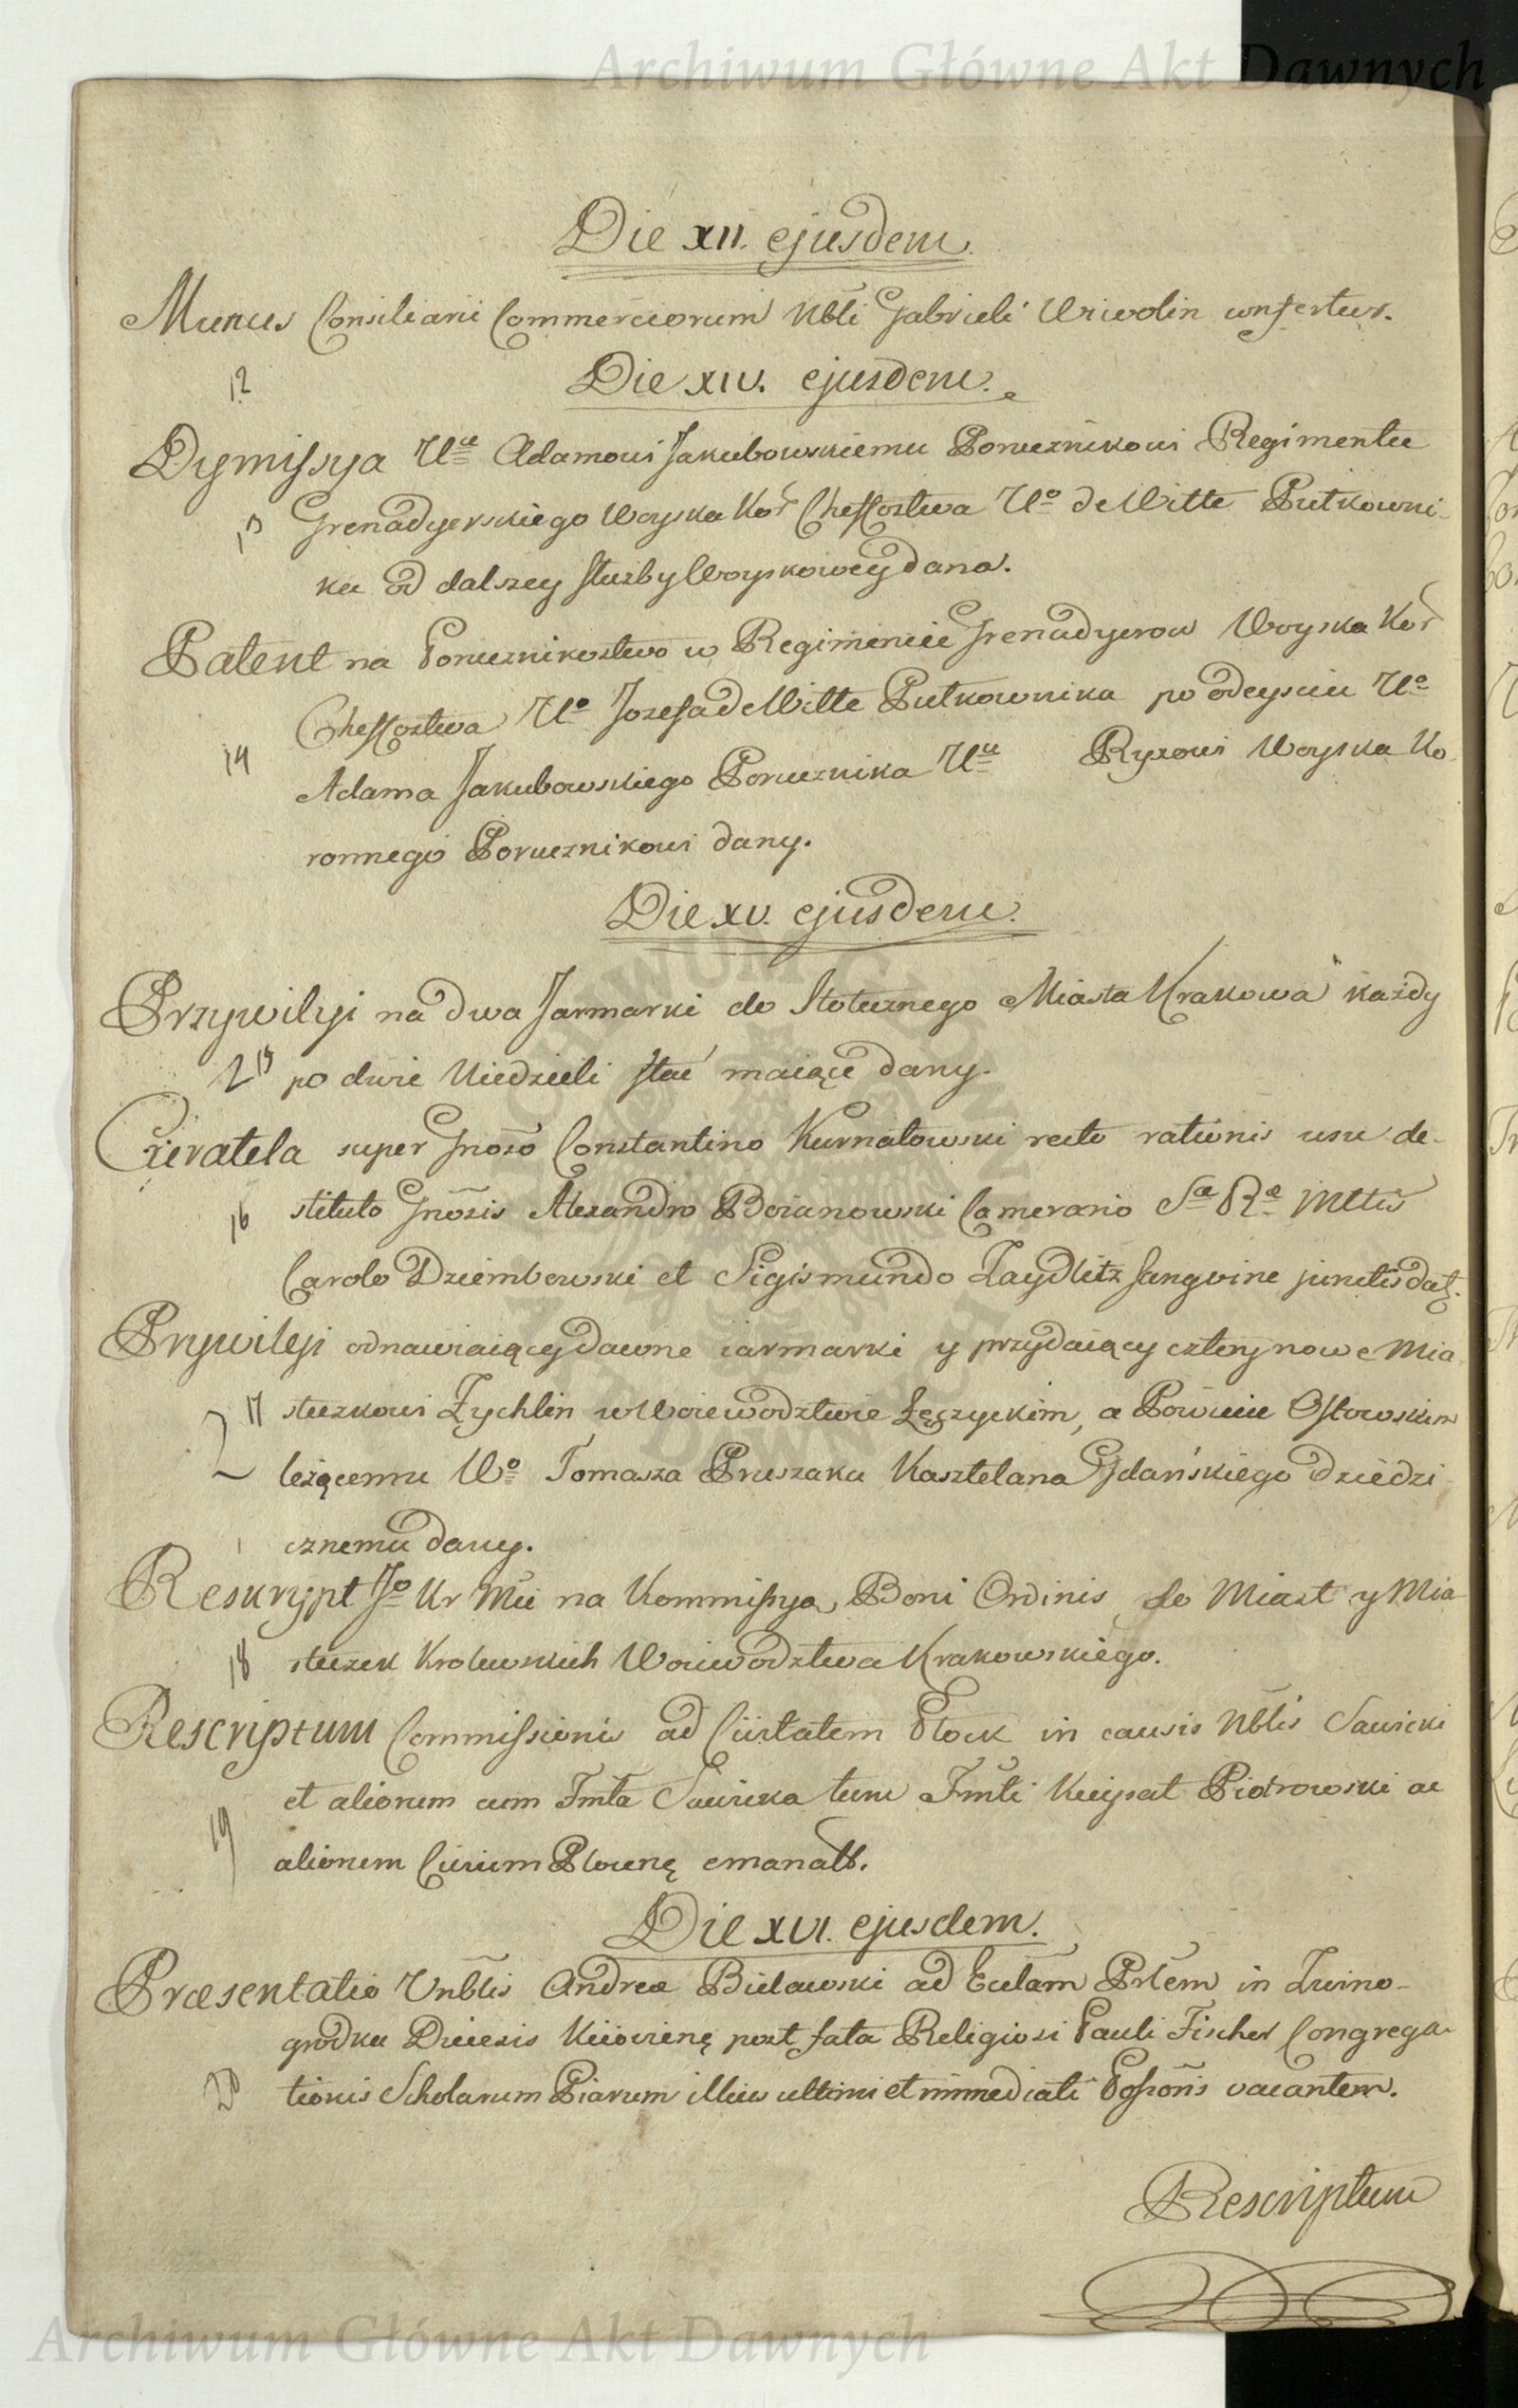 Archiwum Główne Akt Dawnych
Die XII. ejusdem.
Munus Consiliarii Commerciorum Nbli Gabrieli confertur.
12
Die XIV. ejusdem.
Dymissya Ue Adamowi Jakubowskiemu Porucznikowi Regimentu
13 Grenadyerskiego Woyska Kor Szeffostwa Uo de Witte Pułkowni-
ku od dalszey służby Woyskowey dana.
Patent na Porucznikostwo w Regimencie Grenadyerow Woyska Kor
Szeffostwa Uo Jozefa de Witte Pułkownika po odeyściu Uo
14 Adama Jakubowskiego Porucznika Uu Ryxowi Woyska Ko
ronnego Porucznikowi dany.
Die XV. ejusdem.
Przywiley na dwa Jarmarki do Stołecznego Miasta Krakowa każdy
2 15 po dwie Niedzieli stać maiące dany.
Curatela super Gnoso Constantino Kurnatowski recto rationis usu de-
16 stituto Gnosis Alexandro Boianowski Camerario Sæ Ræ Mttis
Carolo Dziembowski et Sigismundo Zaydlitz sangvine junctis dat.
Prywiley odnawiaiący dawne iarmarki y przydaiący cztery nowe Mia
2 17 steczkowi Zychlin w Woiewodztwie Łęczyckim, a Powiecie Orłowskim
leżącemu Wo Tomasza Pruszaka Kasztelana Gdańskiego dziedzi
cznemu dany.
Reskrypt Jo Kr Mci na Kommissyą Boni Ordinis do Miast y Mia-
18 steczek Krolewskich Woiewodztwa Krakowskiego.
Rescriptum Commissionis ad Civitatem Płock in causis Nblis Sawicki
et aliorum cum Fmta Sawicka tum Fmti Piotrowski ac
19 aliorum Civium emanat.
Die XVI. ejusdem.
Præsentatio Vnblis Andreæ Bielawski ad Eccłam Prłem in Zwino-
grodku Diecesis post fata Religiosi Pauli Fischer Congrega-
20 tionis Scholarum Piarum illius ultimi et immediati Possoris vacantem.
Rescriptum
Archiwum Główne Akt Dawnych